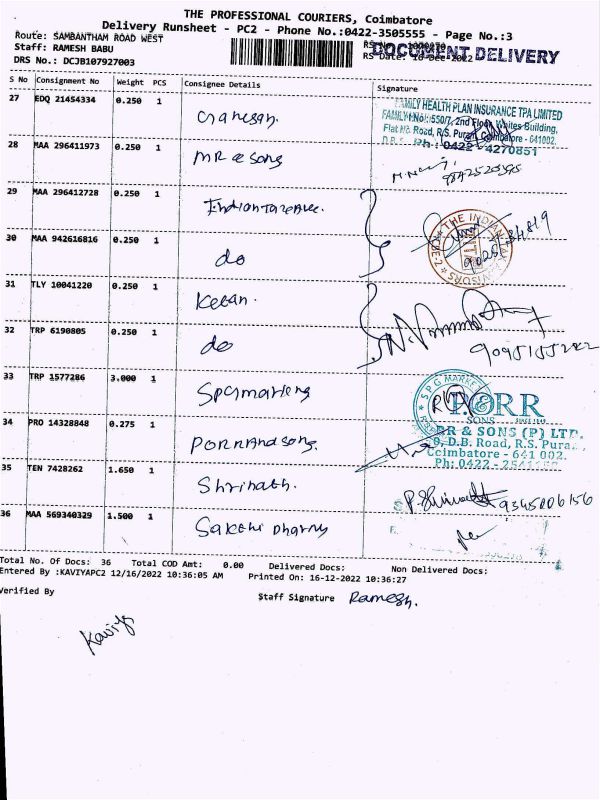 THE PROFESSIONAL COURIERS, Coimbatore
Delivery Runsheet - PC2 - Phone No.:0422-3505555 - Page No.:3
Route: SAMBANTHAM ROAD WEST
Staff: RAMESH BABU
DRS No.: DCJB107927003
RS Date: 16-Dec-2022
DOCUMENT DELIVERY
S No Consignment No Weight PCS Consignee Details Signature
27 EDQ 21454334 0.250 1 Ganesan.
FAMILY HEALTH PLAN INSURANCE TPA LIMITED
550/7, 2nd Floor, Whites Building,
Flat No. Road, R.S. Puram, Coimbatore - 641002.
Ph: 0422 - 4270851
28 MAA 296411973 0.250 1 MR & Sons
29 MAA 296412728 0.250 1
THE INDIAN
30 MAA 942616816 0.250 1 do
31 TLY 10041220 0.250 1
32 TRP 6190805 0.250 1 do
33 TRP 1577286 3.000 1
SPG MARKE
P.ORR
SONS
34 PRO 14328848 0.275 1 P ORR And Sons.
RR & SONS (P) LTD.
9, D.B. Road, R.S. Pura
Coimbatore - 641 002.
Ph: 0422 -
35 TEN 7428262 1.650 1 Shrinath. 9345206156
36 MAA 569340329 1.500 1 Sakthi
Total No. Of Docs: 36 Total COD Amt: 0.00 Delivered Docs: Non Delivered Docs:
Entered By :KAVIYAPC2 12/16/2022 10:36:05 AM Printed On: 16-12-2022 10:36:27
Verified By Staff Signature Ramesh.
Kaviya